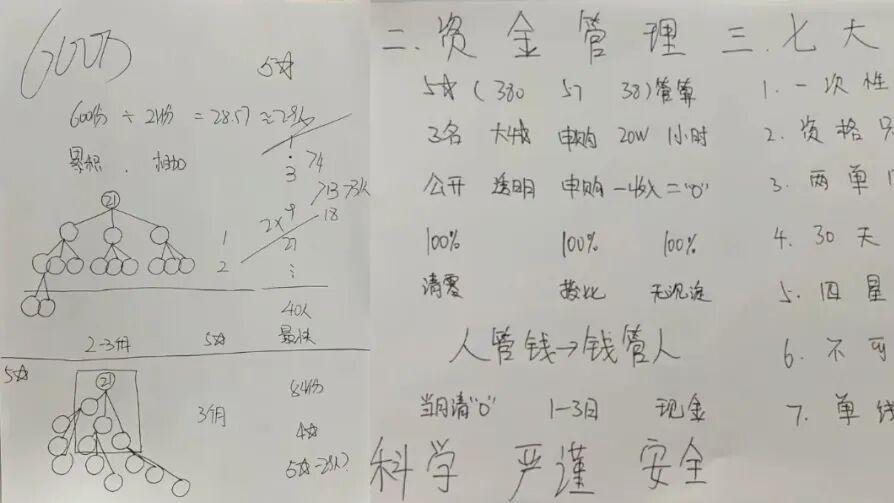 600万
5☆
600份 ÷ 21份 = 28.57 ≈ 29人
累积、相加
1
3 >4
9 >13→3人
2× 18
1 27
2
21
40人
2-3个月 5☆ 最快
5☆
21
84份
3个月
4☆
5☆-29人?
二.资金管理
5☆(380 57 38)管算
3名 大城 申购 20W 1小时
公开 透明 申购-收入="0"
100% 100% 100%
清零 无沉淀
人管钱→钱管人
当月清"0" 1-3日 现金
科学 严谨 安全
三.七大
1.一次性
2.资格
3.两单
4.30天
5.四星
6.不可
7.单线